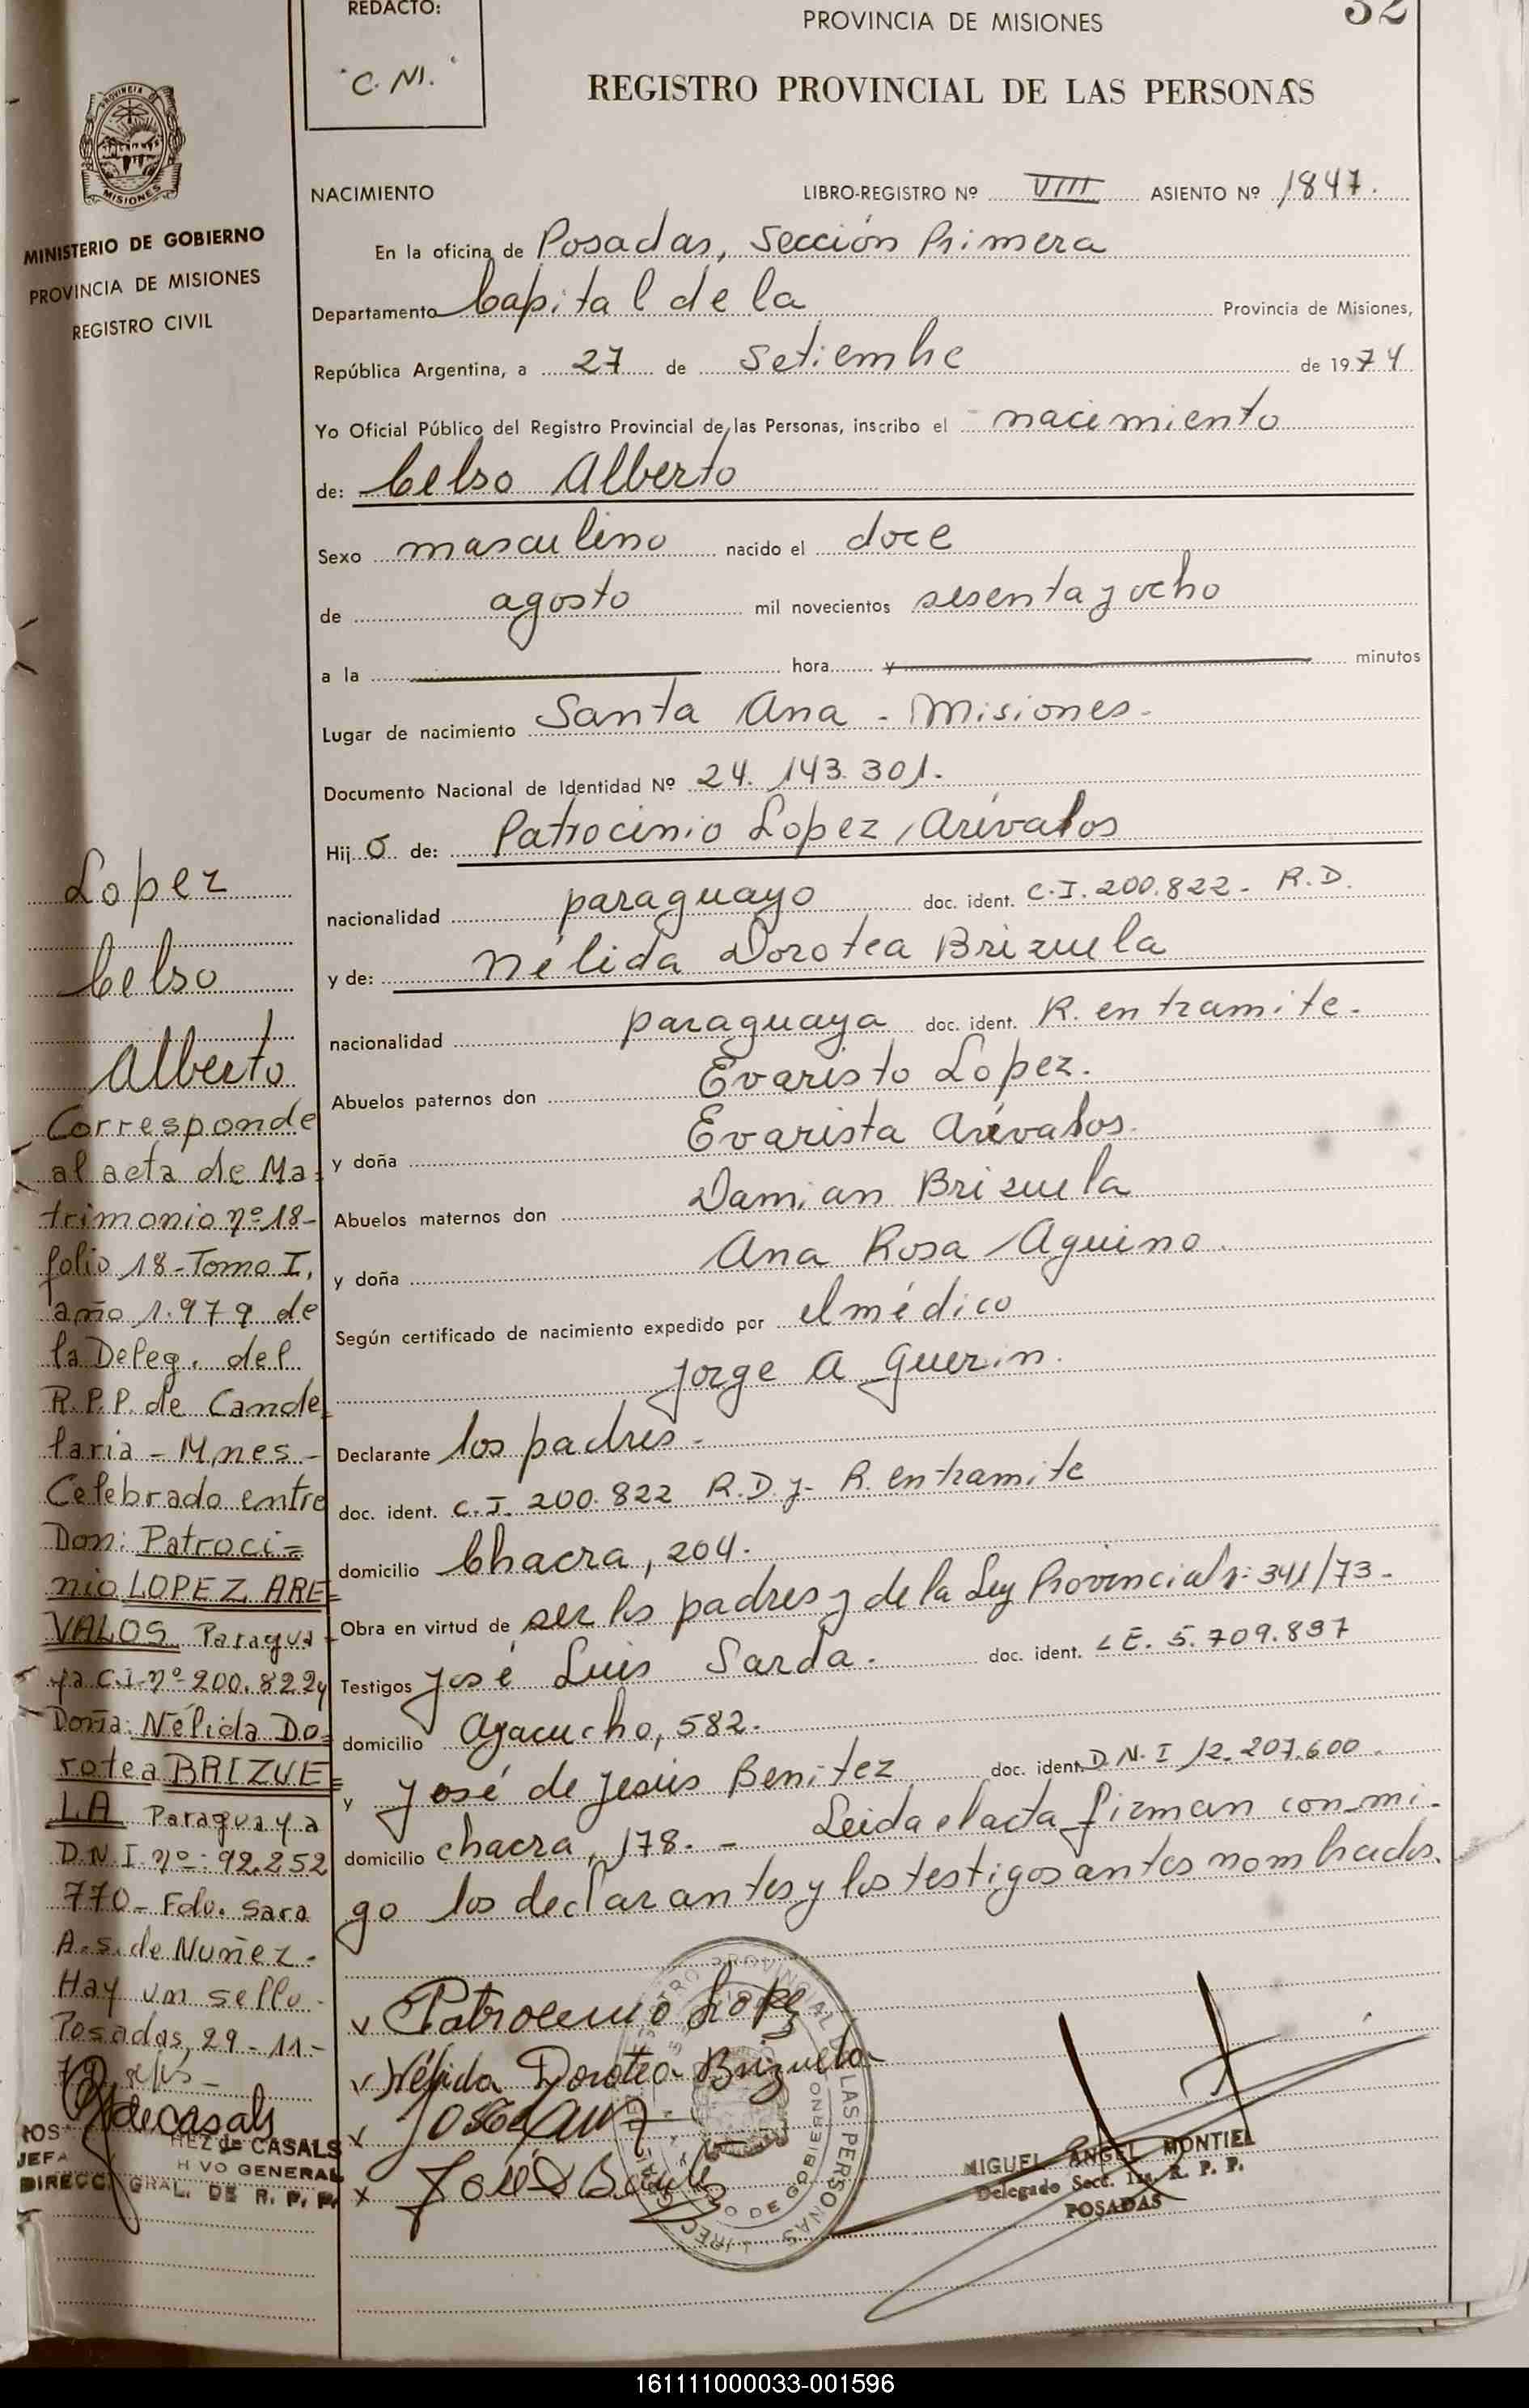 REDACTO:
"C. NI."
PROVINCIA DE MISIONES
32
REGISTRO PROVINCIAL DE LAS PERSONAS
MISIONES
MINISTERIO DE GOBIERNO
PROVINCIA DE MISIONES
REGISTRO CIVIL
NACIMIENTO LIBRO-REGISTRO Nº VIII ASIENTO Nº 1847.
En la oficina de Posadas, Sección Primera
Departamento Capital de la Provincia de Misiones,
República Argentina, a 27 de Setiembre de 1974
Yo Oficial Público del Registro Provincial de las Personas, inscribo el nacimiento
de: Celso Alberto
Sexo masculino nacido el doce
de agosto mil novecientos sesenta y ocho
a la hora y minutos
Lugar de nacimiento Santa Ana - Misiones-
Documento Nacional de Identidad Nº 24.143.301.
Hij o de: Patrocinio Lopez Arévalos
nacionalidad paraguayo doc. ident. C.I. 200.822- R.D.
y de: Nélida Dorotea Brizuela
nacionalidad paraguaya doc. ident. R. en tramite.
Abuelos paternos don Evaristo Lopez.
y doña Evarista Arévalos.
Abuelos maternos don Damian Brizuela
y doña Ana Rosa Aquino.
Según certificado de nacimiento expedido por el médico
Jorge A Guerin.
Declarante los padres-
doc. ident. C.I. 200.822 R.D. y- R. en tramite
domicilio Chacra, 204.
Obra en virtud de ser los padres y de la Ley Provincial nº: 341/73-
Testigos José Luis Sarda. doc. ident. LE. 5.709.837
domicilio Ayacucho, 582.
y José de Jesús Benitez doc. ident. D.N.I 12.207.600.
domicilio chacra, 178.- Leida el acta firman con mi-
go los declarantes y los testigos antes nombrados.
Lopez
Celso
Alberto
Corresponde
al acta de Ma-
trimonio nº 18-
folio 18-Tomo I,
año 1.979 de
la Deleg. del
R.P.P. de Cande-
laria - Mnes-
Celebrado entre
Don: Patroci=
nio LOPEZ ARE=
VALOS Paragua-
ya C.I. nº 200.822 y
Doña: Nélida Do=
rotea BRIZUE=
LA Paraguaya
D.N.I. nº: 92.252
770- Fdo. Sara
A.S. de Nuñez-
Hay un sello-
Posadas, 29-11-
deCasals
HEZ de CASALS
JEFA HIVO GENERAL
DIRECC. GRAL. DE R. P. P.
Patrocinio Lopez
Nélida Dorotea Brizuela
REGISTRO PROVINCIAL DE LAS PERSONAS
DE GOBIERNO
MIGUEL ANGEL MONTIEL
Delegado Secc. 1ra. R. P. P.
POSADAS
161111000033-001596